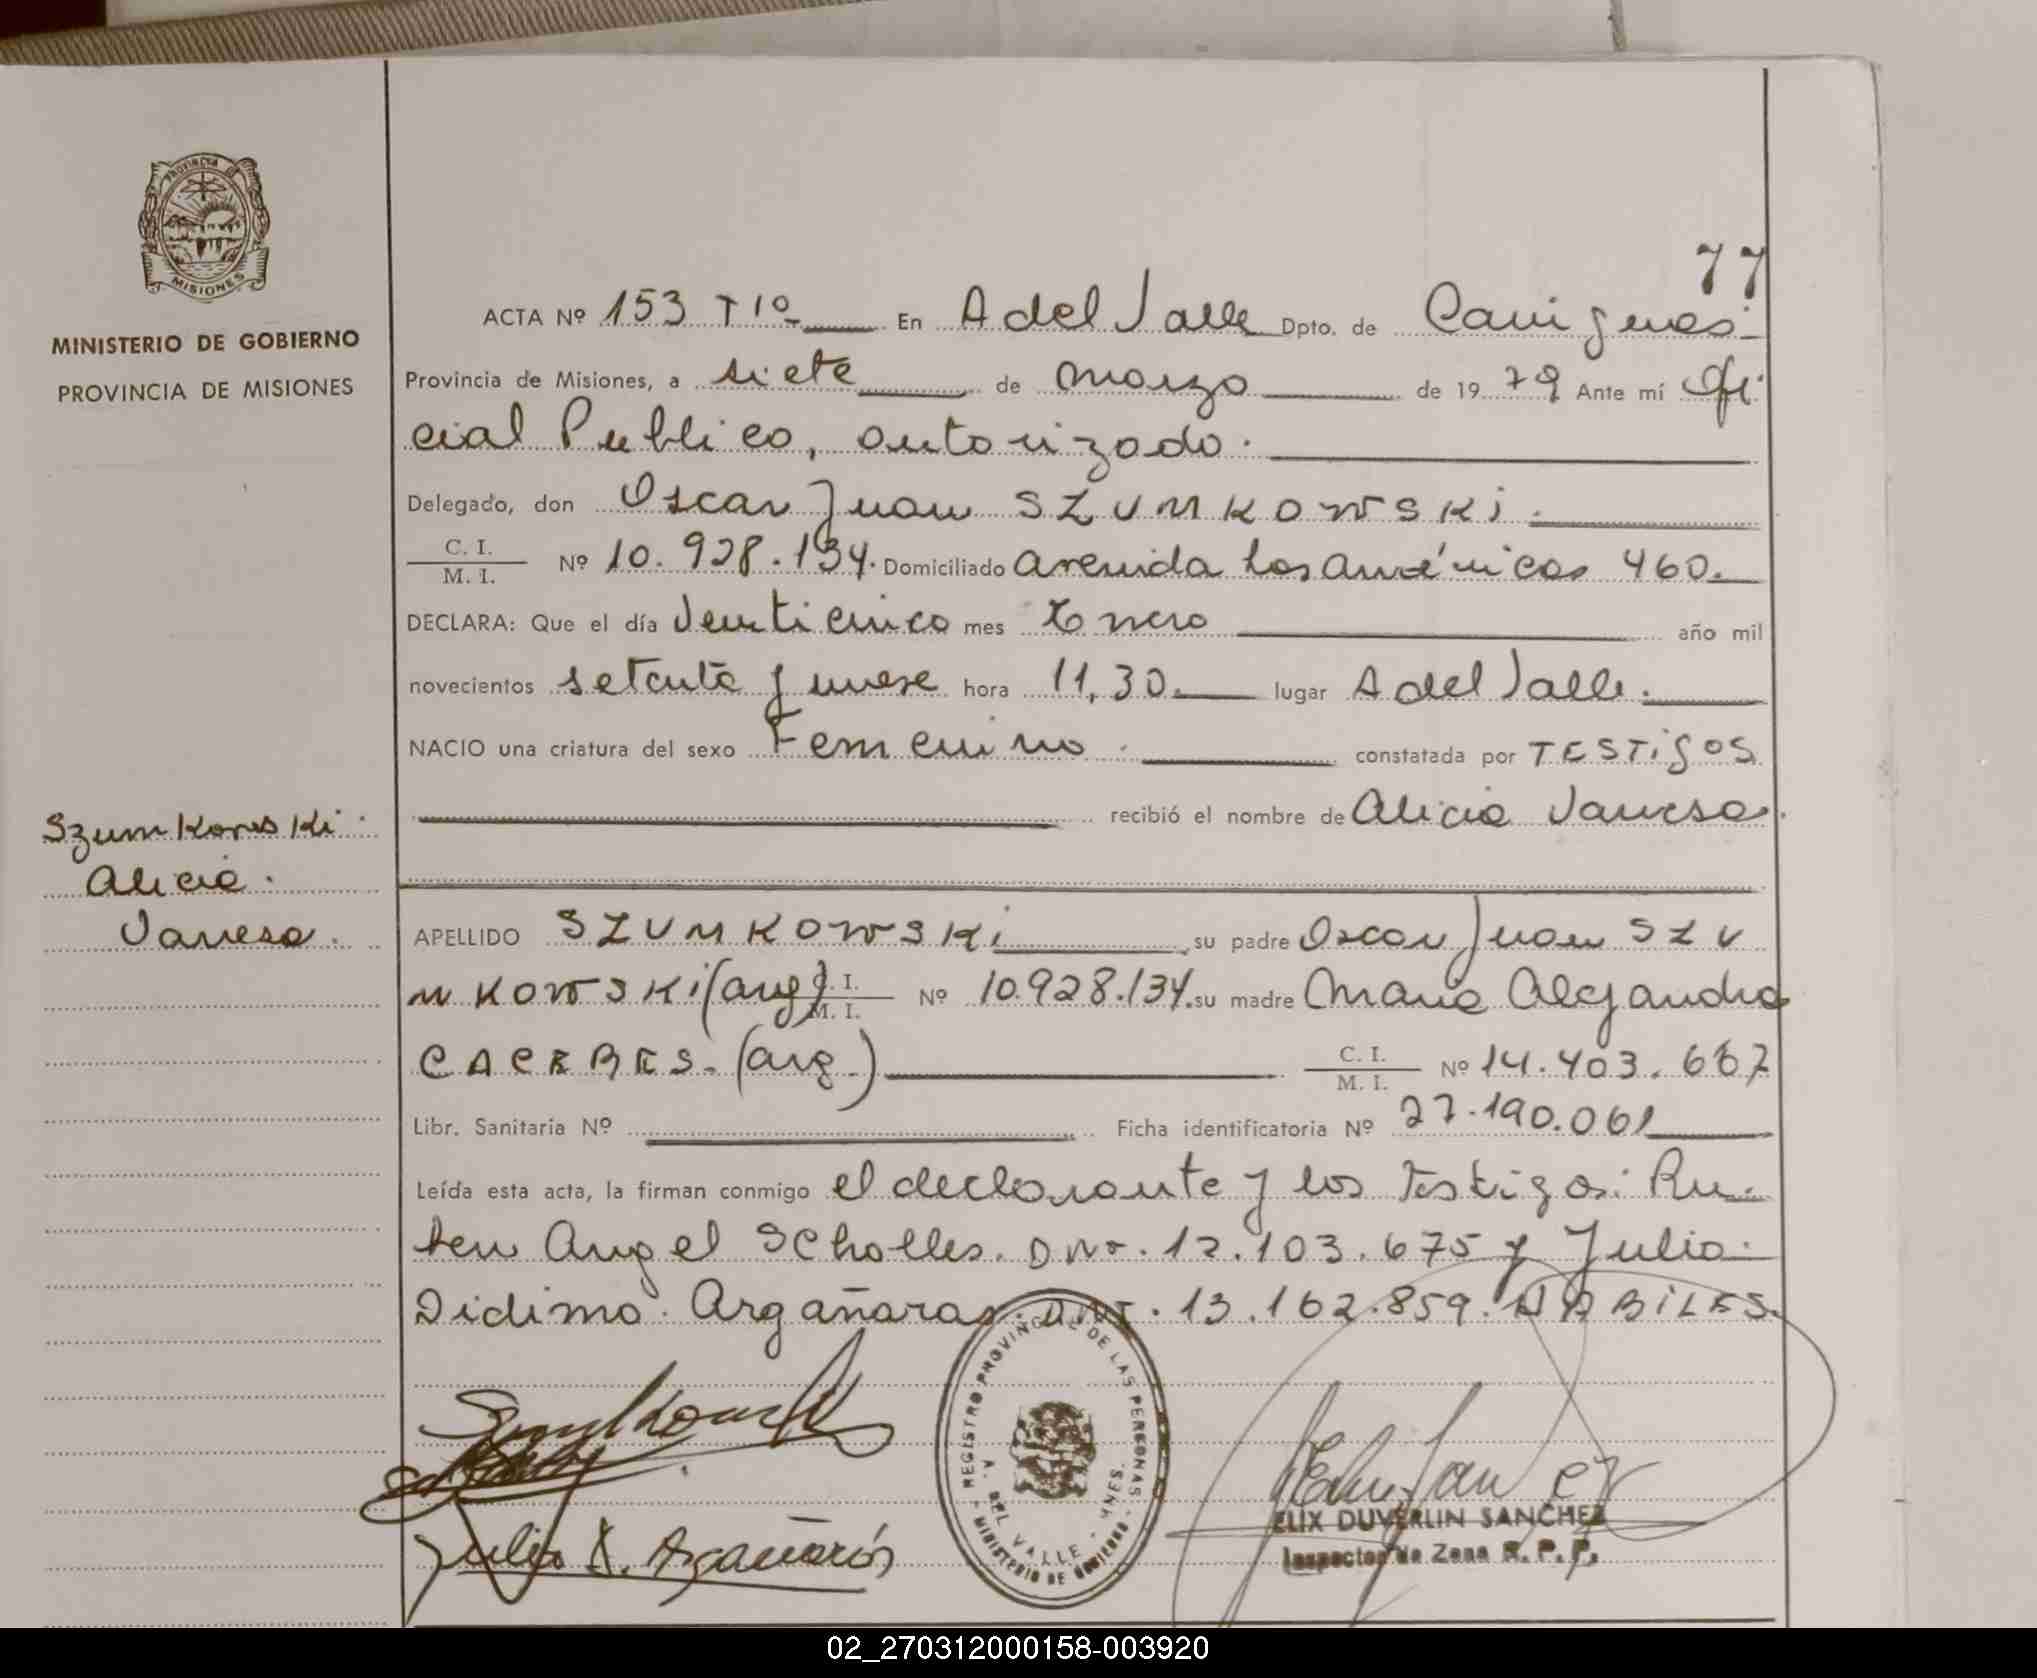 77
MINISTERIO DE GOBIERNO
PROVINCIA DE MISIONES
PROVINCIA DE
MISIONES
ACTA Nº 153 Tº 1º En A del Valle Dpto. de Cainguas
Provincia de Misiones, a siete de marzo de 1979 Ante mí Ofi
cial Publico, autorizado.
Delegado, don Oscar Juan SZUMKOWSKi.
C. I.
M. I. Nº 10.928.134. Domiciliado avenida Las américas 460.
DECLARA: Que el día Veinticinco mes Enero año mil
novecientos setenta y nueve hora 11,30. lugar A del Valle.
NACIO una criatura del sexo Femenino. constatada por TESTiGOS
recibió el nombre de Alicia Vanesa.
Szumkowski
Alicia.
Vanesa.
APELLIDO SZUMKOWSKi su padre Oscar Juan SZU
MKOWSKi (arg) C. I.
M. I. Nº 10.928.134. su madre Maria Alejandra
CACERES. (arg.) C. I.
M. I. Nº 14.403.667
Libr. Sanitaria Nº Ficha identificatoria Nº 27.190.061
Leída esta acta, la firman conmigo el declarante y los Testigos: Ru-
ben Angel Scholles. DNI. 12.103.675 y Julio
Didimo Argañaras. DNI. 13.162.859. HABiLES.
REGISTRO PROVINCIAL DE LAS PERSONAS
A. DEL VALLE - MNES.
MINISTERIO DE GOBIERNO
Julio D. Argañarás
ELIX DUVERLIN SANCHEZ
Inspector de Zona R. P. P.
02_270312000158-003920